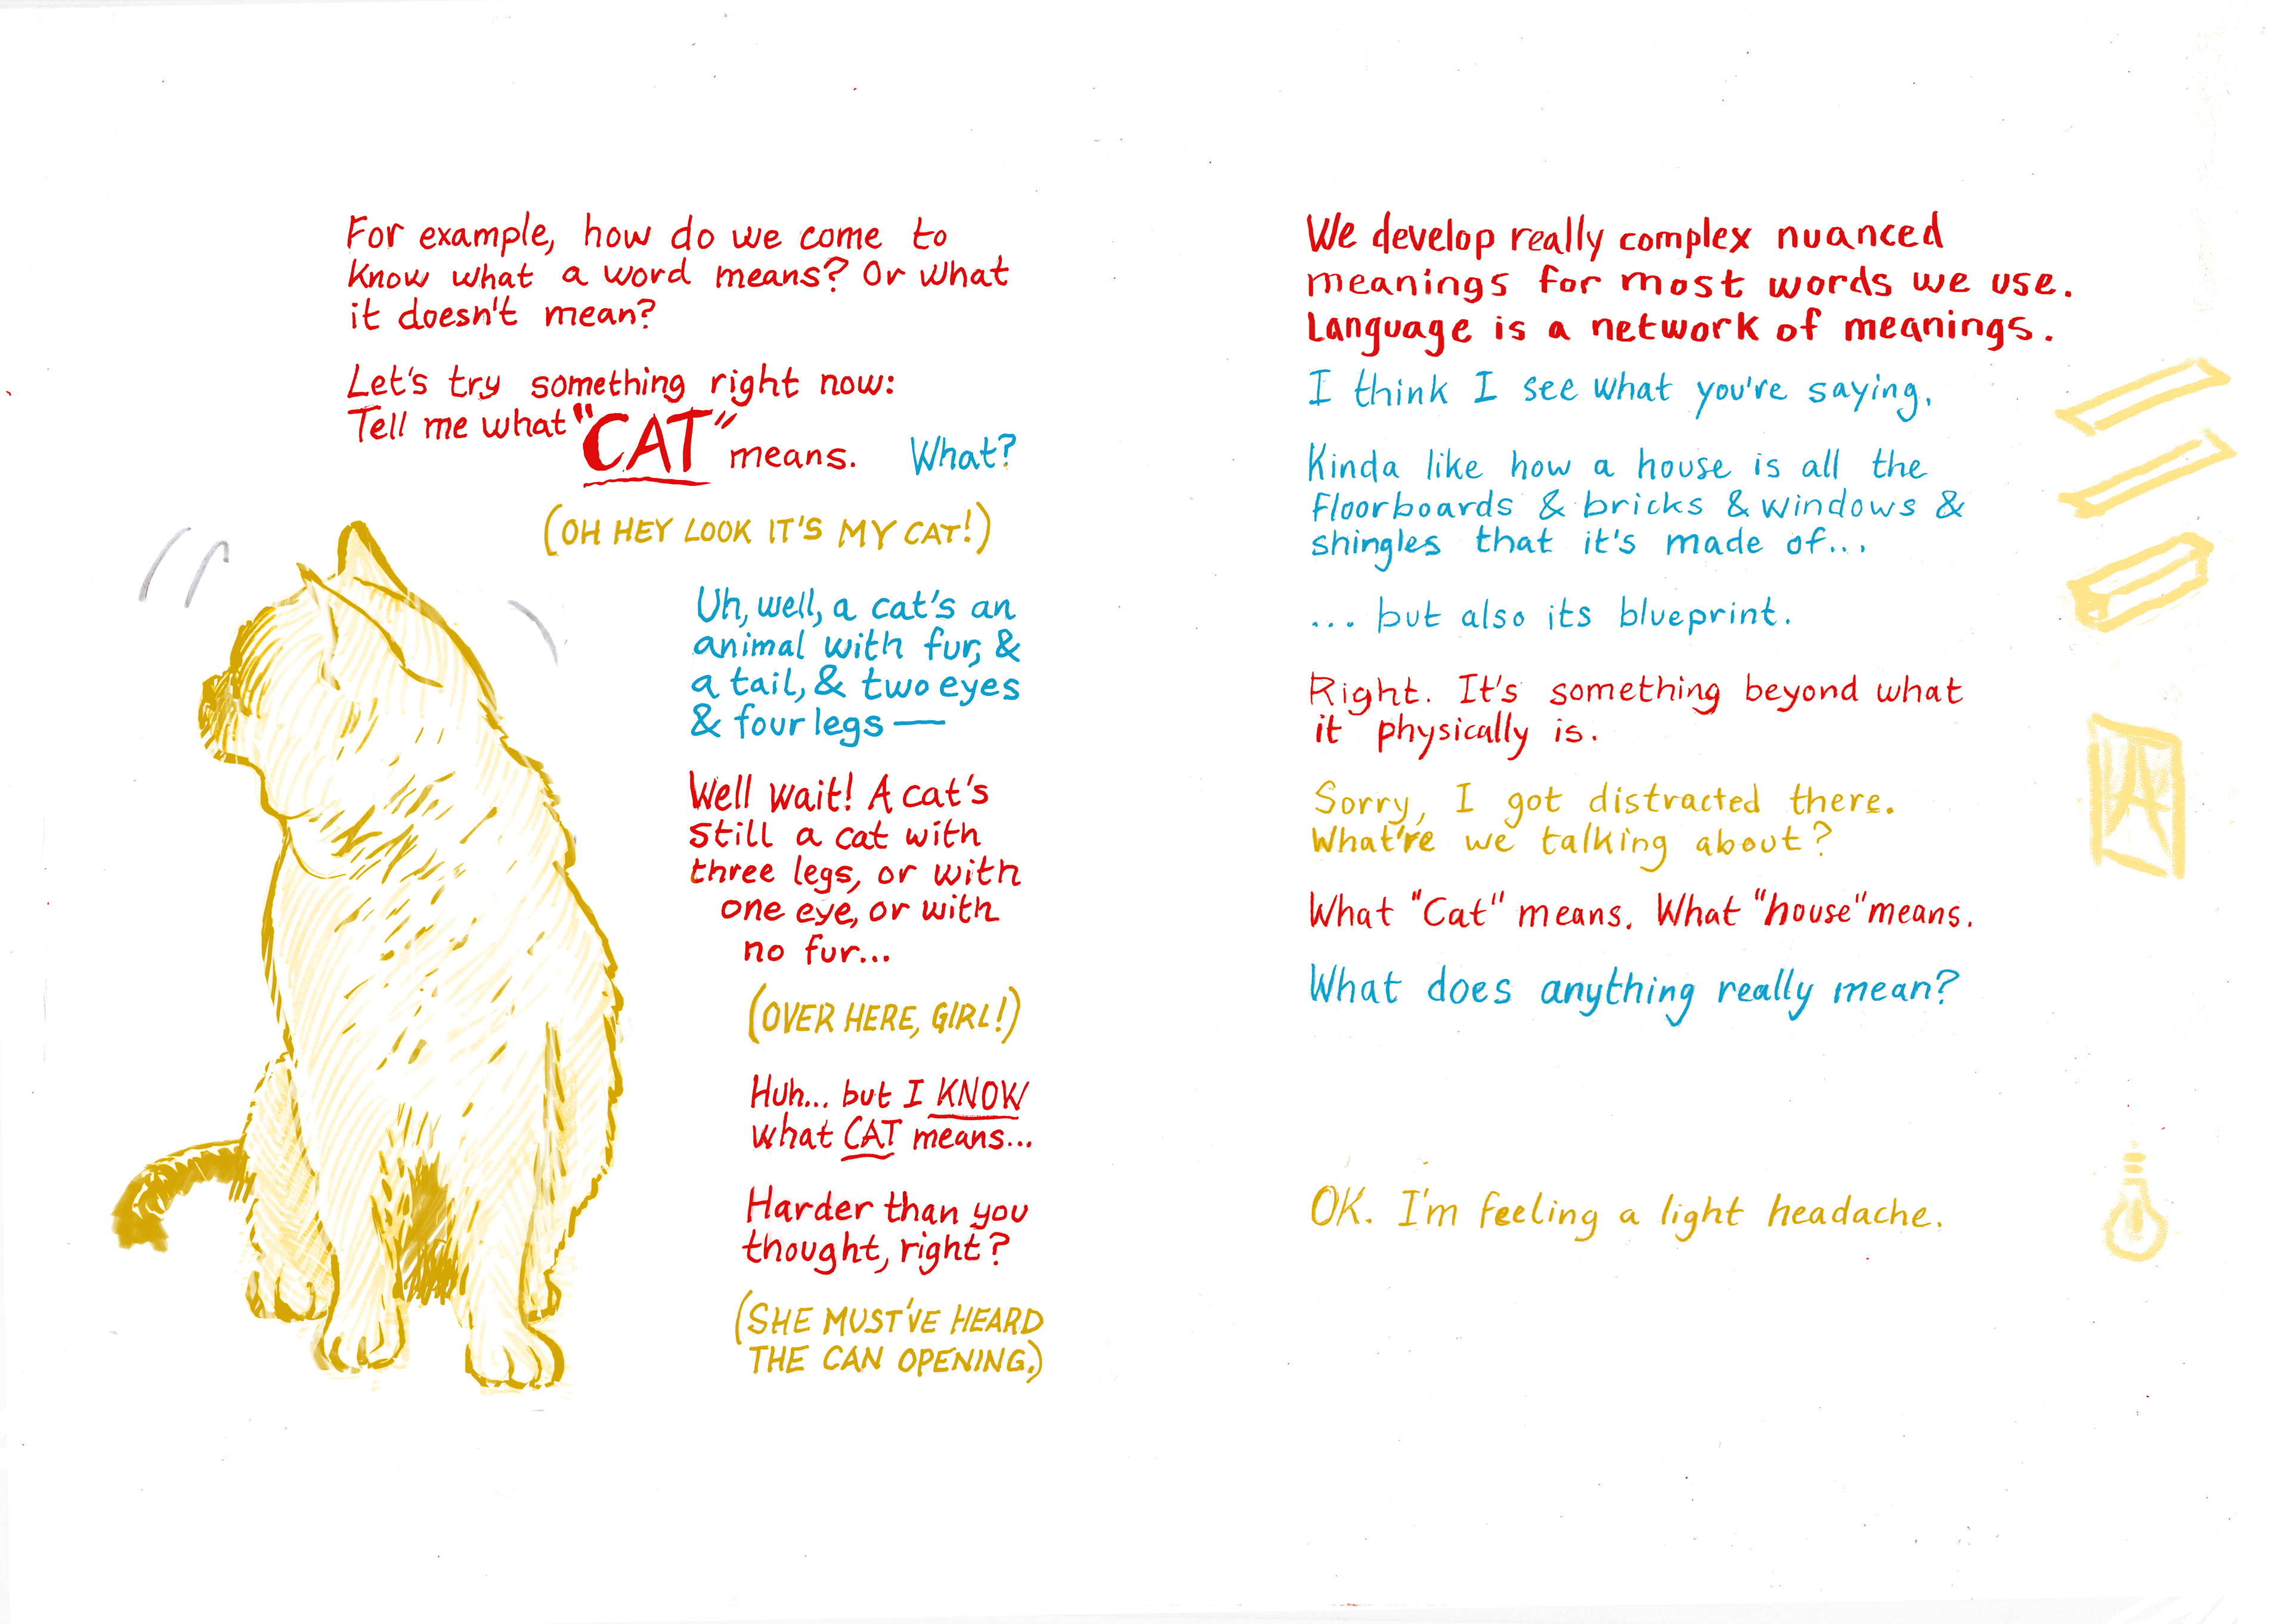 For example, how do we come to
know what a word means? Or what
it doesn't mean?
Let's try something right now:
Tell me what "CAT" means. What?
(OH HEY LOOK IT'S MY CAT!)
Uh, well, a cat's an
animal with fur, &
a tail, & two eyes
& four legs —
Well wait! A cat's
still a cat with
three legs, or with
one eye, or with
no fur...
(OVER HERE, GIRL!)
Huh... but I KNOW
what CAT means...
Harder than you
thought, right?
(SHE MUST'VE HEARD
THE CAN OPENING.)
We develop really complex nuanced
meanings for most words we use.
Language is a network of meanings.
I think I see what you're saying.
Kinda like how a house is all the
floorboards & bricks & windows &
shingles that it's made of...
... but also its blueprint.
Right. It's something beyond what
it physically is.
Sorry, I got distracted there.
What're we talking about?
What "Cat" means. What "house" means.
What does anything really mean?
OK. I'm feeling a light headache.